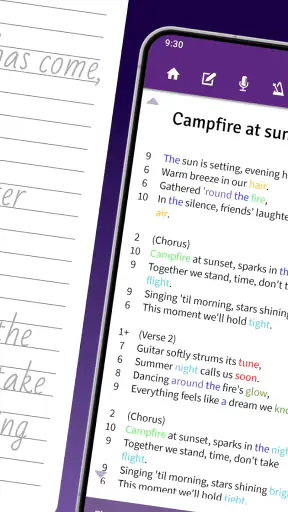 has come,
ter
the
take
ng
9:30
Campfire at sun
9 The sun is setting, evening h
6 Warm breeze in our hair.
6 Gathered 'round the fire,
10 In the silence, friends' laughte
air.
2 (Chorus)
10 Campfire at sunset, sparks in th
9 Together we stand, time, don't t
flight.
9 Singing 'til morning, stars shining
6 This moment we'll hold tight.
1+ (Verse 2)
7 Guitar softly strums its tune,
6 Summer night calls us soon.
8 Dancing around the fire's glow,
9 Everything feels like a dream we kno
2 (Chorus)
10 Campfire at sunset, sparks in the nigh
9 Together we stand, time, don't take
flight.
9 Singing 'til morning, stars shining brigh
6 This moment we'll hold tight.